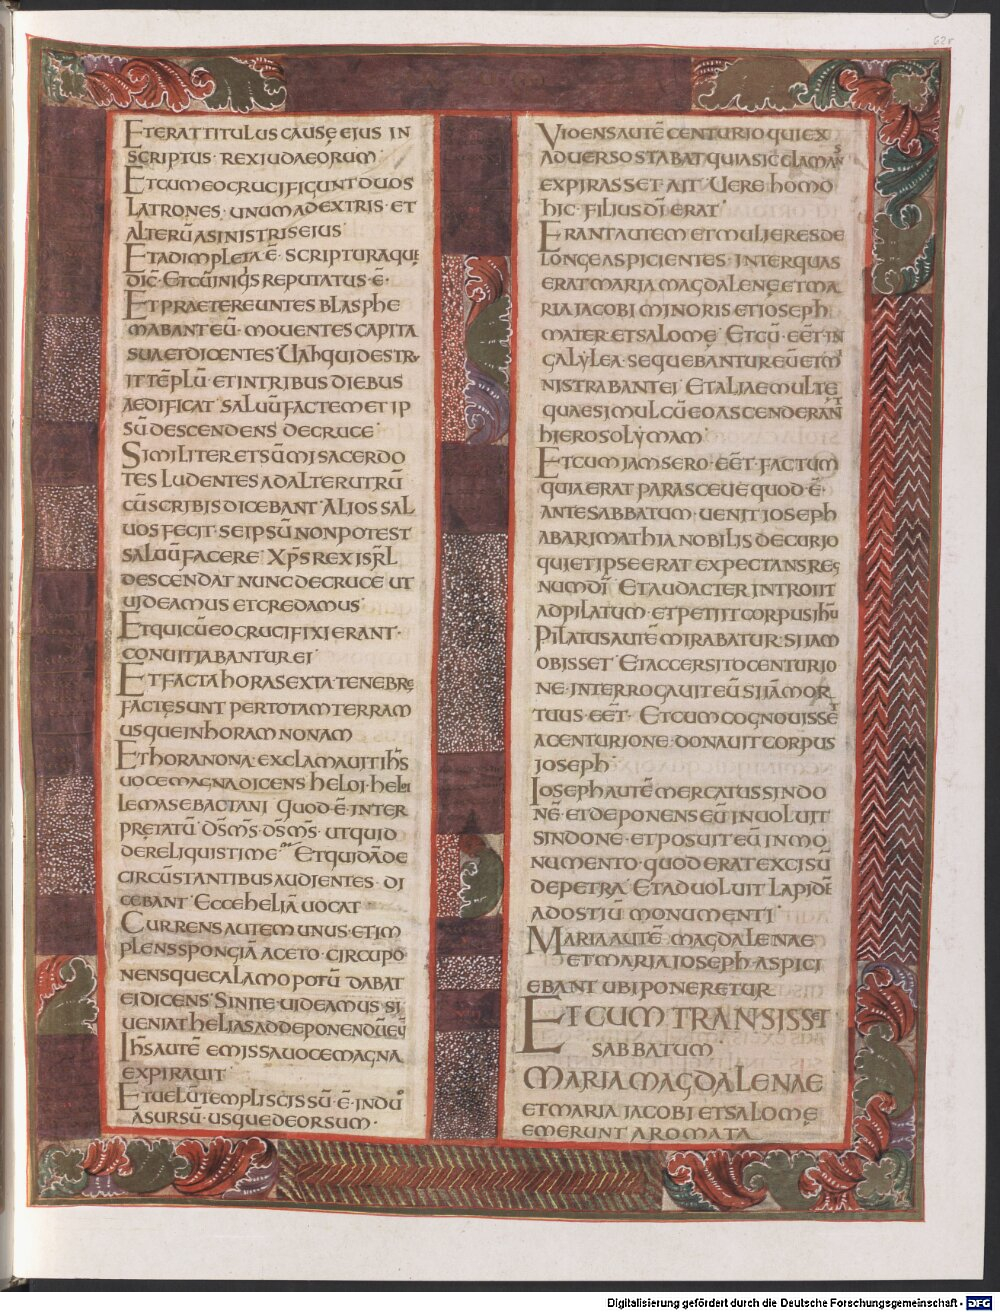 62r
ETERAT TITULUS CAUSĘ EIUS IN
SCRIPTUS · REX IUDAEORUM
ET CUM EO CRUCIFIGUNT DUOS
LATRONES · UNUM A DEXTRIS · ET
ALTERŪ A SINISTRIS EIUS
ET ADIMPLETA · Ē · SCRIPTURA QUE
DIC̄ · ET CŪ INIQ̄S REPUTATUS · Ē ·
ET PRAETEREUNTES BLASPHE
MABANT EŪ · MOUENTES CAPITA
SUA ET DICENTES UAH QUI DESTR
IT TĒPLŪ · ET IN TRIBUS DIEBUS
AEDIFICAT SALUŪ FAC TEMET IP
SŪ DESCENDENS DE CRUCE
SIMILITER ET SŪMI SACERDO
TES LUDENTES AD ALTERUTRŪ
CŪ SCRIBIS DICEBANT ALIOS SAL
UOS FECIT · SEIPSŪ NON POTEST
SALUŪ FACERE XP̄S REX ISR̄L
DESCENDAT NUNC DE CRUCE UT
UIDEAMUS ET CREDAMUS
ET QUI CŪ EO CRUCIFIXI ERANT ·
CONUITIABANTUR EI
ET FACTA HORA SEXTA TENEBRĘ
FACTĘ SUNT PER TOTAM TERRAM
USQUE IN HORAM NONAM
ET HORA NONA · EXCLAMAUIT IH̄S
UOCE MAGNA DICENS HELOI · HELOI
LEMA SEBACTANI QUOD · Ē · INTER
PRETATŪ D̄S M̄S · D̄S M̄S · UT QUID
DERELIQUISTI ME ET QUIDĀ DE
CIRCŪSTANTIBUS AUDIENTES · DI
CEBANT ECCE HELIĀ UOCAT
CURRENS AUTEM UNUS · ET IM
PLENS SPONGIĀ ACETO · CIRCUPO
NENSQUE CALAMO POTŪ DABAT
EI DICENS SINITE · UIDEAMUS · SI
UENIAT HELIAS AD DEPONENDU EU
IH̄S AUTĒ EMISSA UOCE MAGNA
EXPIRAUIT
ET UELŪ TEMPLI SCISSŪ · Ē · IN DUO
A SURSŪ · USQUE DEORSUM ·
VIDENS AUTĒ CENTURIO QUI EX
ADUERSO STABAT QUIA SIC CLAMANS
EXPIRASSET · AIT UERE HOMO
HIC · FILIUS DĪ ERAT
ERANT AUTEM ET MULIERES DE
LONGE ASPICIENTES · INTER QUAS
ERAT MARIA MAGDALENĘ ET MA
RIA IACOBI MINORIS ET IOSEPH
MATER · ET SALOMĘ ET CŪ · EĒT · IN
GALYLEA · SEQUEBANTUR EŪ ET MI
NISTRABANT EI ET ALIAE MULTĘ
QUAE SIMUL CŪ EO ASCENDERANT
HIEROSOLYMAM
ET CUM IAM SERO · EĒT · FACTUM
QUIA ERAT PARASCEUE QUOD · Ē ·
ANTE SABBATUM · UENIT IOSEPH
AB ARIMATHIA NOBILIS DECURIO
QUI ET IPSE ERAT EXPECTANS REG
NUM DĪ ET AUDACTER INTROIIT
AD PILATUM · ET PETIIT CORPUS IHŪ
PILATUS AUTĒ MIRABATUR · SI IAM
OBISSET ET ACCERSITO CENTURIO
NE · INTERROGAUIT EŪ SI IĀ MOR
TUUS · EĒT · ET CUM COGNOUISSĒ
A CENTURIONE · DONAUIT CORPUS
IOSEPH
IOSEPH AUTĒ MERCATUS SINDO
NĒ · ET DEPONENS EŪ INUOLUIT
SINDONE · ET POSUIT EŪ IN MO
NUMENTO · QUOD ERAT EXCISŪ
DE PETRA ET ADUOLUIT LAPIDĒ
AD OSTIŪ MONUMENTI
MARIA AUTĒ MAGDALENAE
ET MARIA IOSEPH · ASPICI
EBANT UBI PONERETUR
ET CUM TRANSISSET
SABBATUM
MARIA MAGDALENAE
ET MARIA IACOBI ET SALOMĘ
EMERUNT AROMATA
Digitalisierung gefördert durch die Deutsche Forschungsgemeinschaft - DFG